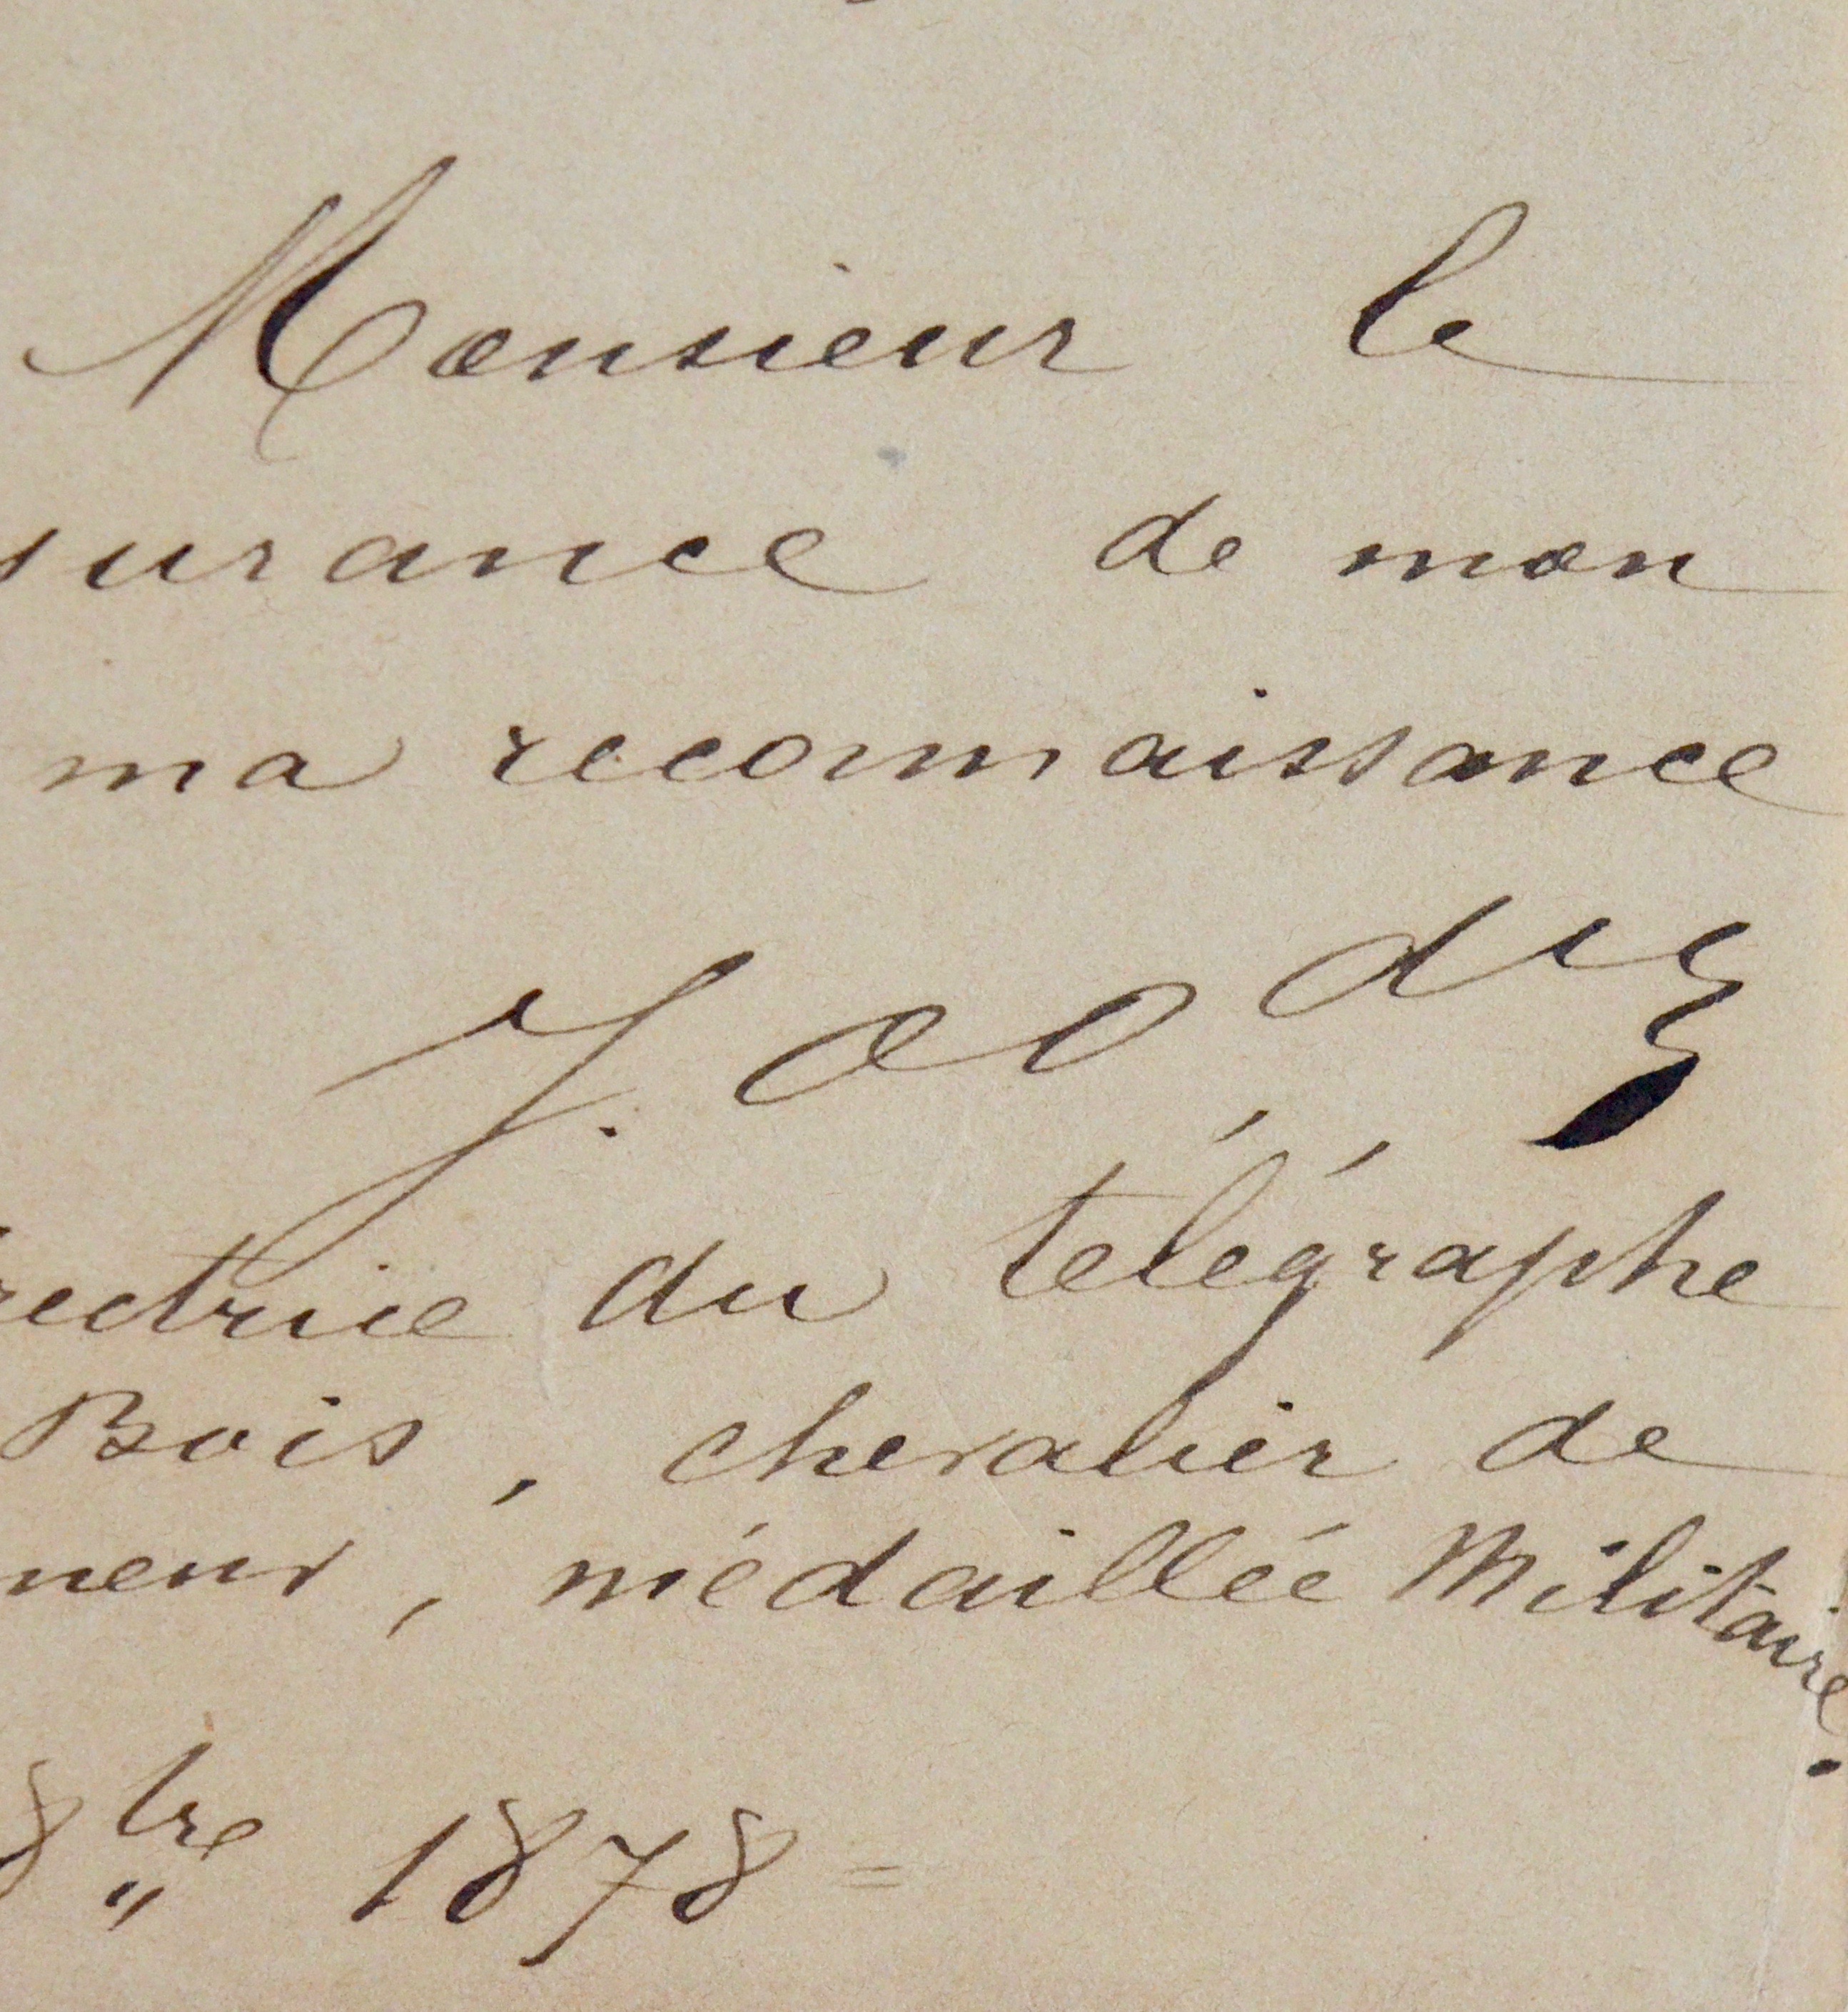 Monsieur le
surance de mon
ma reconnaissance
J. Dodu
rectrice du télégraphe
Bois, chevalier de
neur, médaillée Militaire.
8bre 1878 =